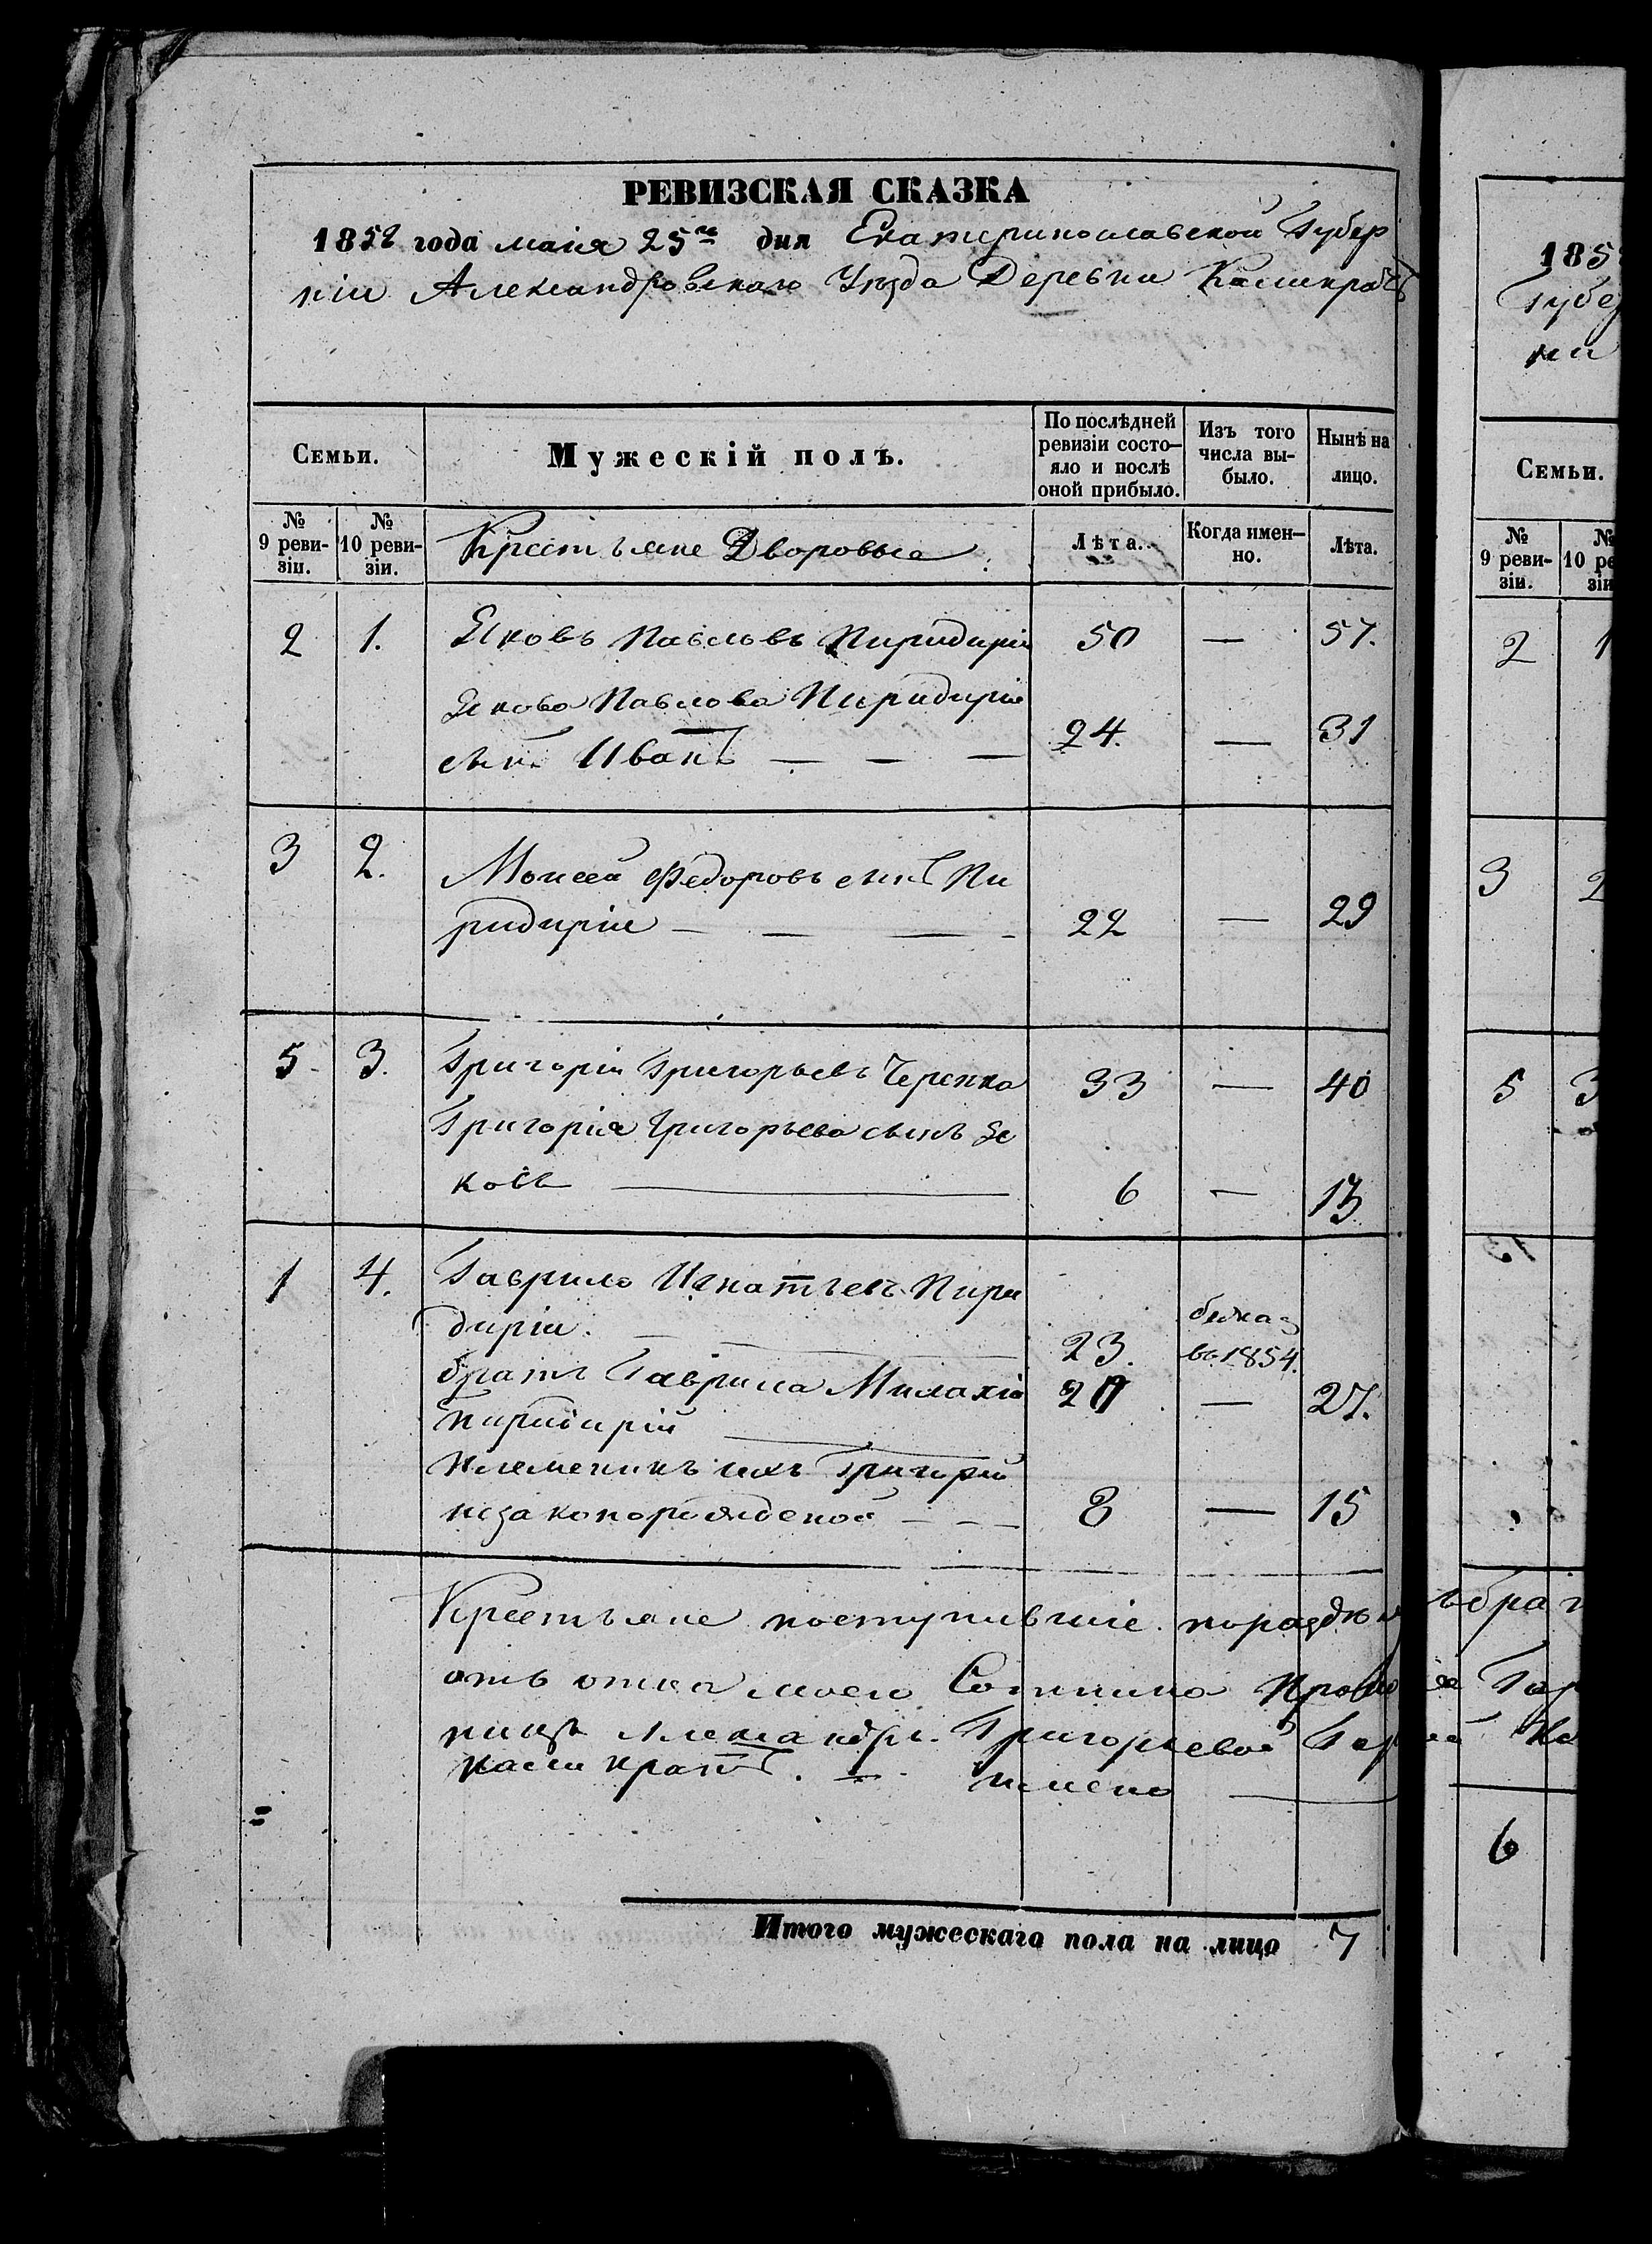 РЕВИЗСКАЯ СКАЗКА
1858 года маія 25го дня Екатеринославской Губер
ніи Александровскаго Уѣзда Деревни Касикратъ
Семьи.
Мужескій полъ.
По послѣдней ревизіи состо-
яло и послѣ оной прибыло.
Изъ того числа вы-
было.
Нынѣ на лицо.
№ 9 реви-
зіи.
№ 10 реви-
зіи.
Крестьяне Дворовыя
Лѣта.
Когда имен-
но.
Лѣта.
2 1. Яковъ Павловъ Пиридирій 50 — 57.
Якова Павлова Пиридирія
сынъ Иванъ — — — 24. — 31
3 2. Моисей Федоровъ сынъ Пи
ридирій — — — - 22 — 29
5 3. Григорій Григорьевъ Черепка 33 — 40
Григорія Григорьева сынъ Я
ковъ — 6 — 13
1 4. Гаврило Игнатьевъ Пири
дирій. — — 23. бежа въ 1854.
братъ Гаврила Милахій 20 — 27.
Пиридирій —
Племеникъ ихъ Григорій
незаконорожденой — — — 8 — 15
Крестьяне поступившіе по раздѣлу
отъ отца моего
Александры Григорьевой
Касикратъ. — имено —
Итого мужескаго пола на лицо 7
185
Губер
ни
Семьи.
№ 9 реви-
зіи.
№ 10 ре
зіи
2 1
3 2
5 3
6